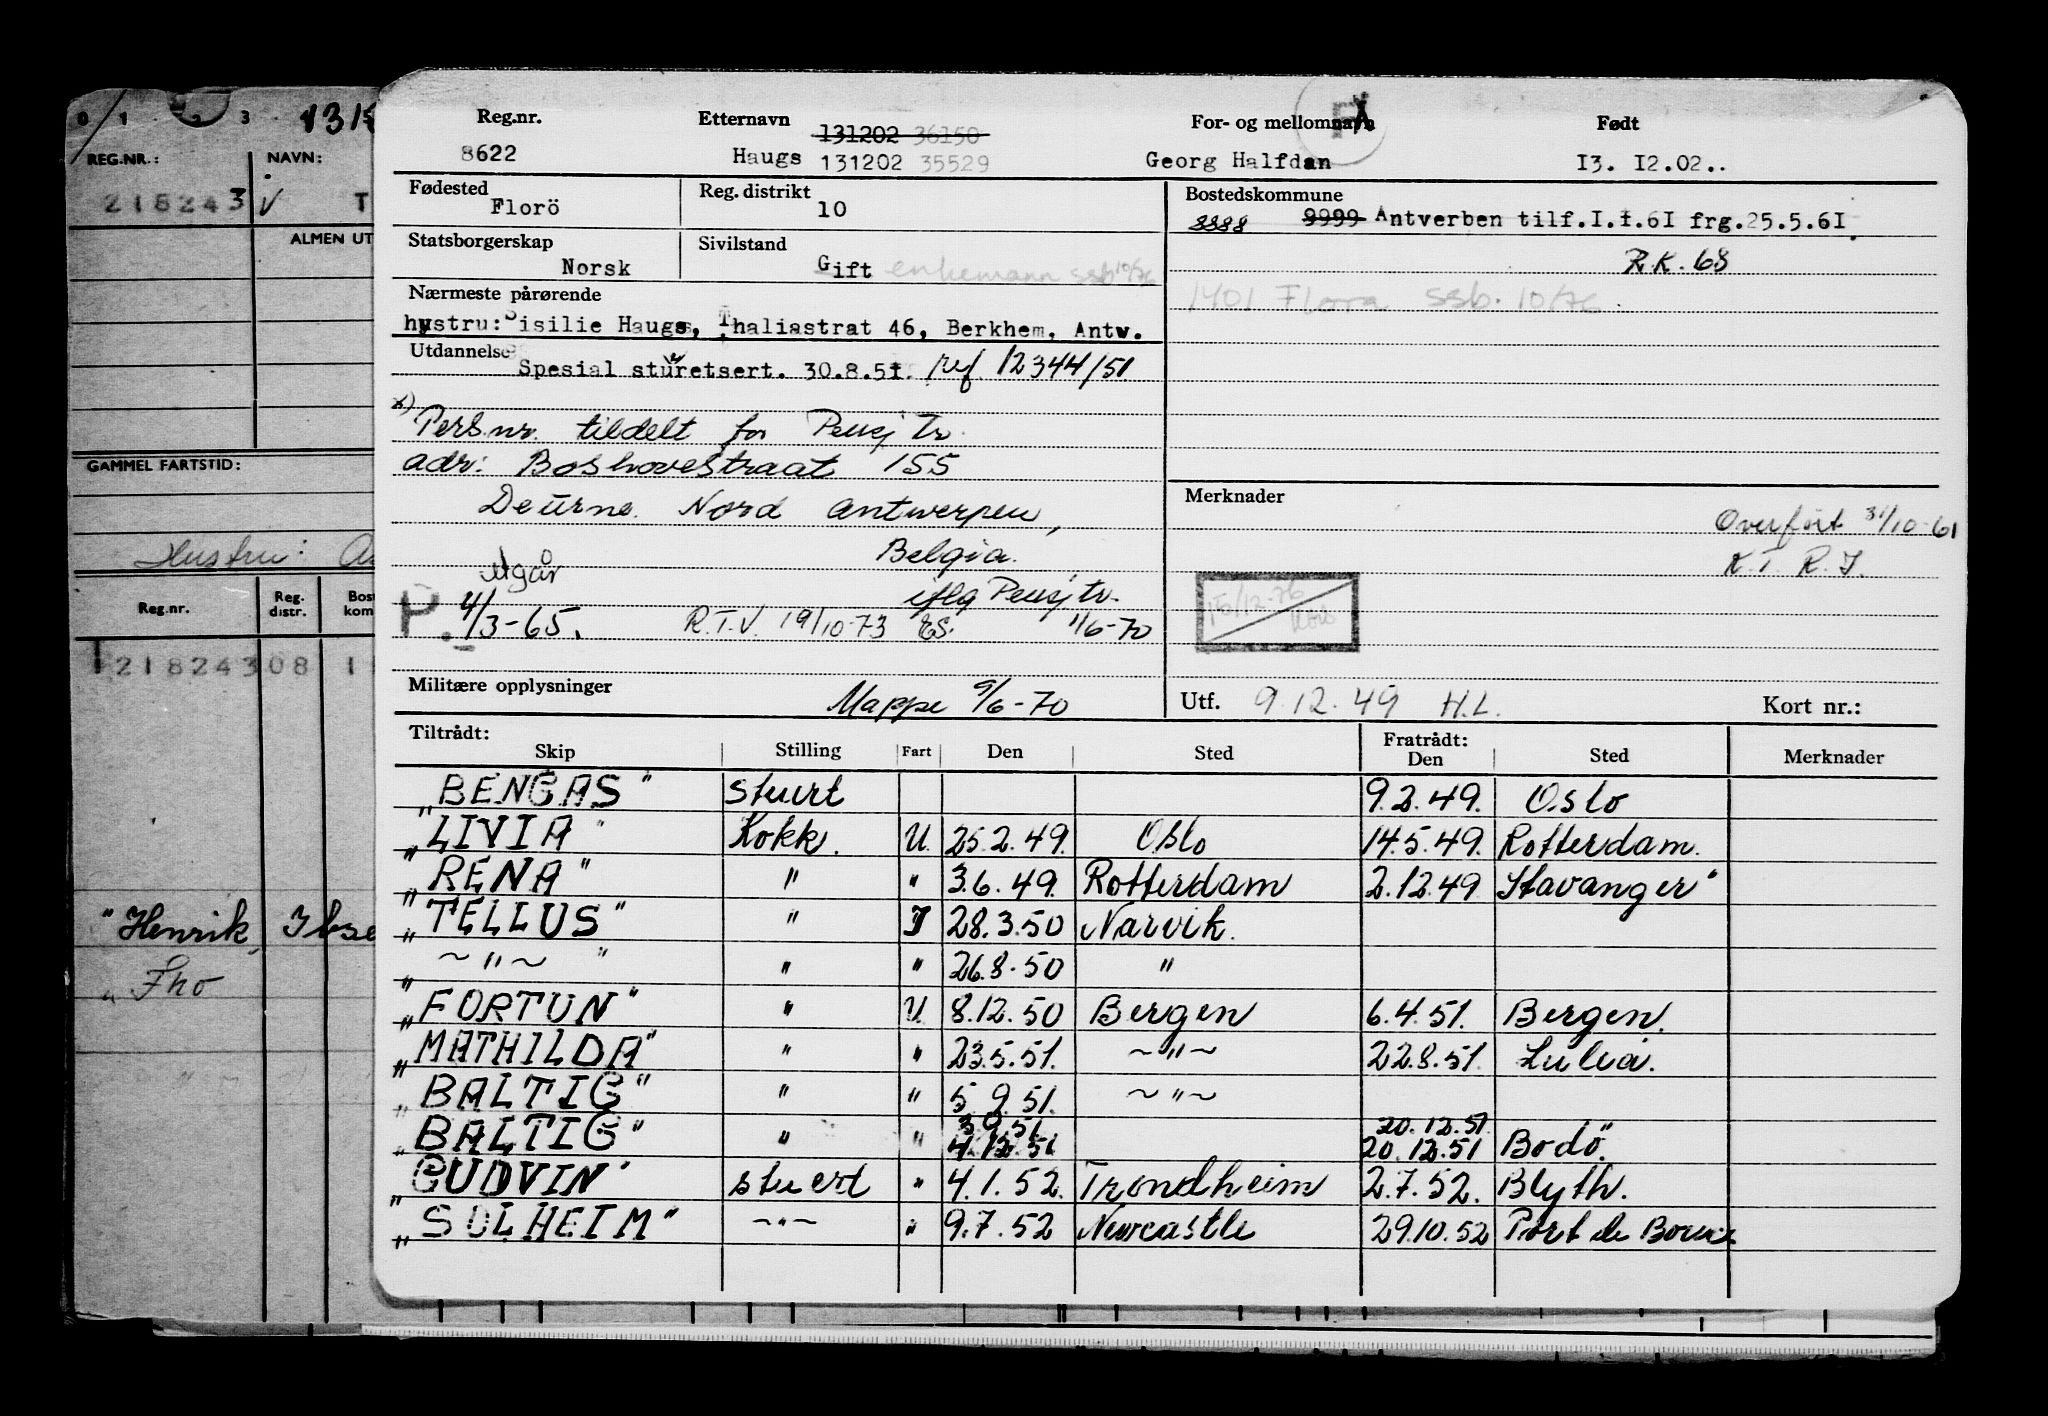 0 1 2 3 1315
REG.NR.: NAVN:
218243 T
ALMEN UT
GAMMEL FARTSTID:
Hustru:
Reg.nr. Reg. distr. Bost kom
T21824308 1
"Henrik Ibse
" Fho
Reg.nr. Etternavn For- og mellomnavn Født
131202 36150
8622 Haugs 131202 35529 Georg Halfdan I3. I2.02..
Fødested Reg. distrikt Bostedskommune
Florö 10 8888 9999 Antverben tilf.I.1.6I frg.25.5.6I.
Statsborgerskap Sivilstand
Norsk Gift enkemann ssb 10/76 R.K. 68
Nærmeste pårørende 1401 Flora ssb. 10/76
hystru: Sisilie Haugs, Thaliastrat 46, Berkhem, Antw.
Utdannelse
Spesial stüretsert. 30.8.51. ref. 12344/51
x) Persnr. tildelt for Pensj Tr.
adr: Boshovestraat 155
Deurne Nord Antwerpen,
Belgia.
Merknader
Overført 31/10-61
K.T. R.J.
utgår iflg Pensj tr.
P. 4/3-65. R.T.V. 19/10-73 ES. 1/6-70
15/12-76
Militære opplysninger Mappe 9/6-70 Utf. 9.12.49 H.L. Kort nr.:
Tiltrådt: Fratrådt:
Skip Stilling Fart Den Sted Den Sted Merknader
"BENGAS" Stuert 9.2.49. Oslo
"LIVIA" Kokk. U. 25.2.49. Oslo 14.5.49. Rotterdam.
"RENA" " " 3.6.49. Rotterdam 2.12.49 Stavanger"
"TELLUS" " I 28.3.50 Narvik.
" ~"~ " " " 26.8.50 "
"FORTUN" " U. 8.12.50 Bergen 6.4.51. Bergen.
"MATHILDA" " " 23.5.51. ~"~ 22.8.51. Luleå.
"BALTIG" " " 5.9.51. ~"~
3.9.51. 20.12.51
"BALTIG" " " 4.12.51 20.12.51 Bodö.
"GUDVIN" stuert " 4.1.52. Trondheim 2.7.52. Blyth.
"SOLHEIM" ~"~ " 9.7.52 Newcastle 29.10.52 Port de Bouc